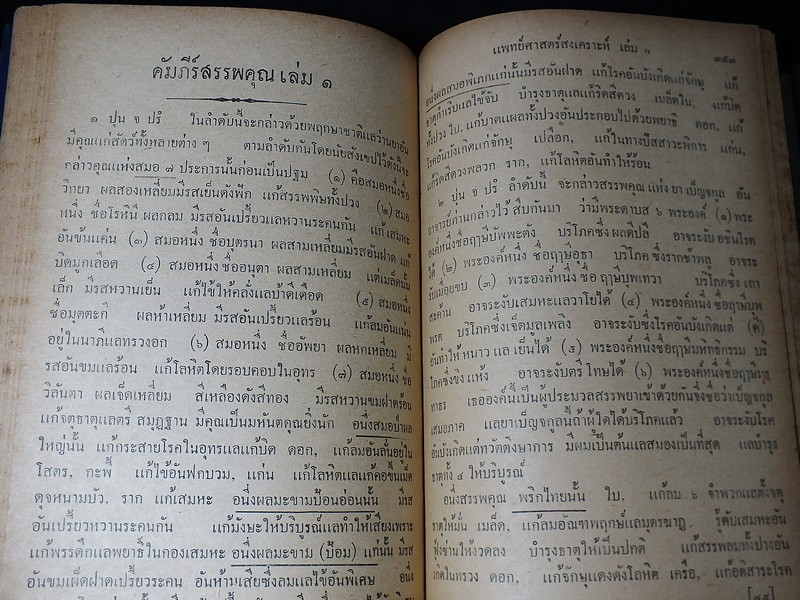 คัมภีร์สรรพคุณ เล่ม ๑
๑ ปุน จ ปรํ ในลำดับนี้จะกล่าวด้วยพฤกษาชาติแลว่านยาอัน
มีคุณแก่สัตว์ทั้งหลายต่าง ๆ ตามลำดับกันโดยนัยสังเขปไว้ดังนี้จะ
กล่าวคุณแห่งสมอ ๗ ประการนั้นก่อนเป็นปฐม (๑) คือสมอหนึ่งชื่อ
วิทยา ผลสองเหลี่ยมมีรสเย็นดังฟัก แก้สรรพพิษทั้งปวง (๒) สมอ
หนึ่ง ชื่อโรหินี ผลกลม มีรสอันเปรี้ยวแลหวานระคนกัน แก้เสมหะ
อันข้นแค่น (๓) สมอหนึ่ง ชื่อบุตรนา ผลสามเหลี่ยมมีรสอันฝาด แก้
บิดมูกเลือด (๔) สมอหนึ่ง ชื่ออนุตา ผลสามเหลี่ยม แต่เมล็ดนั้น
เล็ก มีรสหวานเย็น แก้ไข้ให้คลั่งแลบ้าดีเดือด (๕) สมอหนึ่ง
ชื่อมุตตะกี ผลห้าเหลี่ยม มีรสอันเปรี้ยวแลร้อน แก้ลมอันแน่น
อยู่ในนาภีแลทรวงอก (๖) สมอหนึ่ง ชื่ออัพยา ผลหกเหลี่ยม มี
รสอันขมแลร้อน แก้โลหิตโดยรอบคอบในอุทร (๗) สมอหนึ่ง ชื่อ
วิลันตา ผลเจ็ดเหลี่ยม สีเหลืองดังสีทอง มีรสหวานขมฝาดร้อน
แก้จตุธาตุแลตรี สมุฏฐาน มีคุณเป็นมหันตคุณยิ่งนัก อนึ่งสมอป่าผล
ใหญ่นั้น แก้กระสายโรคในอุทรแลแก้บิด ดอก, แก้ลมอันลั่นอยู่ใน
โสตร, กะพี้ แก้ไข้อันฟกบวม, แก่น แก้โลหิตแลแก้คอขึ้นเม็ด
ดุจหนามบัว, ราก แก้เสมหะ อนึ่งผลมะขามป้อนอ่อนนั้น มีรส
อันเปรี้ยวหวานระคนกัน แก้มังษะให้บริบูรณ์แลทำให้เสียงเพราะ
แก้พรรดึกแลพยาธิ์ในกองเสมหะ อนึ่งผลมะขาม (ป้อม) แก่นั้น มีรส
อันขมเผ็ดฝาดเปรี้ยวระคน อันห้ามเสียซึ่งลมแลไข้อันพิเศษ อนึ่ง
แพทย์ศาสตร์สงเคราะห์ เล่ม ๑ ๓๕๓
อนึ่งผลสมอพิเภกแก่นั้นมีรสอันฝาด แก้โรคอันบังเกิดแก่จักษุ แก้
ธาตุกำเริบแลไข้จับ บำรุงธาตุแลแก้ริดสีดวง เมล็ดใน, แก้บิด
ทั้งปวง ใบ, แก้บาดแผลทั้งปวงอันประกอบไปด้วยพยาธิ ดอก, แก้
โรคอันบังเกิดแก่จักษุ เปลือก, แก้ในทางปัสสาวะพิการ แก่น,
แก้ริดสีดวงพลวก ราก, แก้โลหิตอันทำให้ร้อน
๒ ปุน จ ปรํ ลำดับนี้ จะกล่าวสรรพคุณ แห่ง ยา เบ็ญจกูล อัน
อาจารย์ท่านกล่าวไว้ สืบกันมา ว่ามีพระดาบส ๖ พระองค์ (๑) พระ
องค์หนึ่งชื่อฤๅษีบัพพะตัง บริโภคซึ่ง ผลดีปลี อาจระงับ อชินโรค
ได้ (๒) พระองค์หนึ่ง ชื่อฤๅษีอุธา บริโภค ซึ่งรากช้าพลู อาจระ
(๓) พระองค์หนึ่งชื่อ ฤๅษีบุพเทวา บริโภคซึ่ง เถา
สะค้าน อาจระงับเสมหะแลวาโยได้ (๔) พระองค์หนึ่งชื่อฤๅษีบุพ
พรต บริโภคซึ่งเจ็ตมูลเพลิง อาจระงับซึ่งโรคอันบังเกิดแต่ (ดี)
อันทำให้หนาว แล เย็นได้ (๕) พระองค์หนึ่งชื่อฤๅษีมหิทธิกรรม บริ
โภคซึ่งขิง แห้ง อาจระงับตรี โทษได้ (๖) พระองค์หนึ่งชื่อฤๅษี
ทาธร เธอองค์นี้เป็นผู้ประมวลสรรพยาเข้าด้วยกันจึงชื่อว่าเบ็ญจกูล
เสมอภาค แลยาเบ็ญจกูลนี้ถ้าผู้ใดได้บริโภคแล้ว อาจระงับโรค
อันบังเกิดแต่ทวัตติงษาการ มีผมเป็นต้นแลสมองเป็นที่สุด แลบำรุง
ธาตุทั้ง ๔ ให้บริบูรณ์
อนึ่งสรรพคุณ พริกไทยนั้น ใบ, แก้ลม ๖ จำพวกแลตั้งจตุ
ธาตุให้มั่น เมล็ด, แก้ลมอัณฑพฤกษ์แลมุตรฆาฏ รู้ดับเสมหะอัน
ฟุ้งซ่านให้งวดลง บำรุงธาตุให้เป็นปกติ แก้สรรพลมทั้งปวงอัน
เกิดในทรวง ดอก, แก้จักษุแดงดังโลหิต เครือ, แก้อติสาระโรค